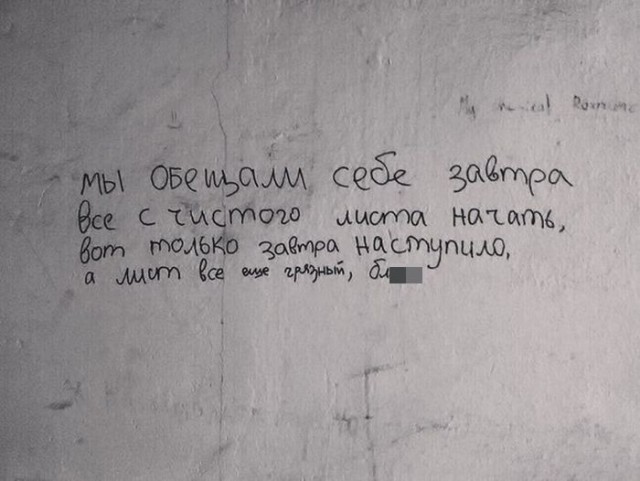 My Romance
мы обещали себе завтра
все с чистого листа начать,
вот только завтра наступило,
а лист все еще грязный, бл